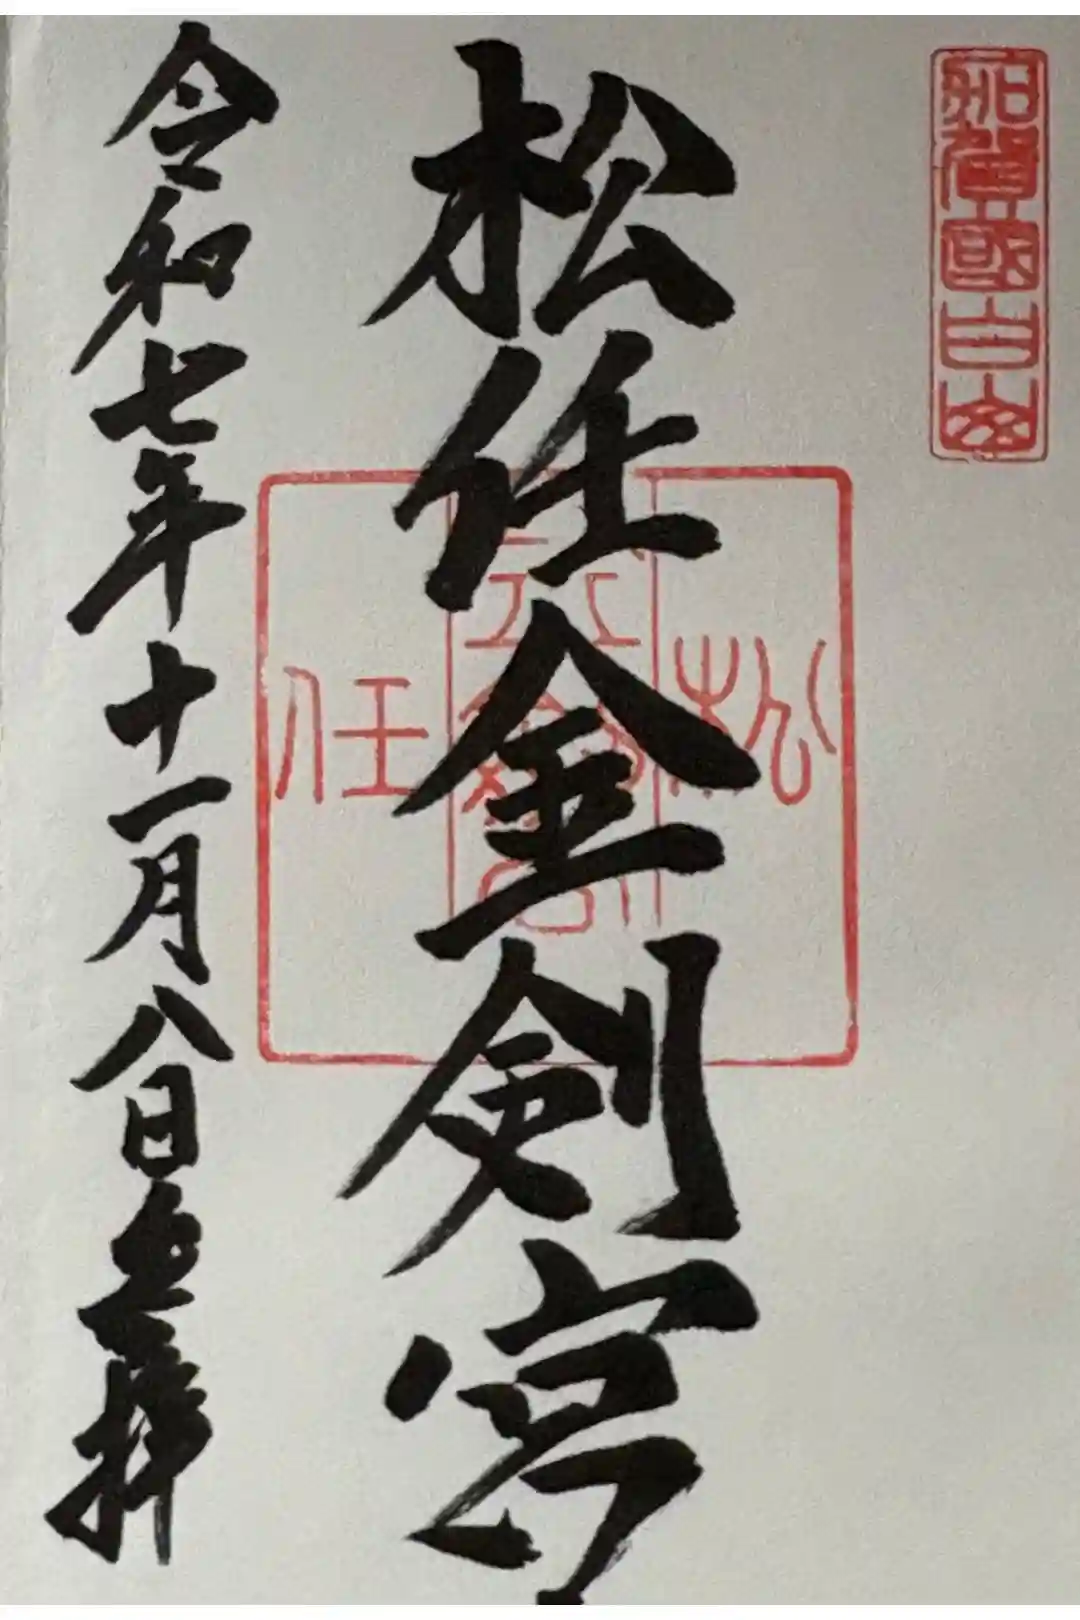 加賀國白山
松任金剣宮
松
任
令和七年十一月八日参拝